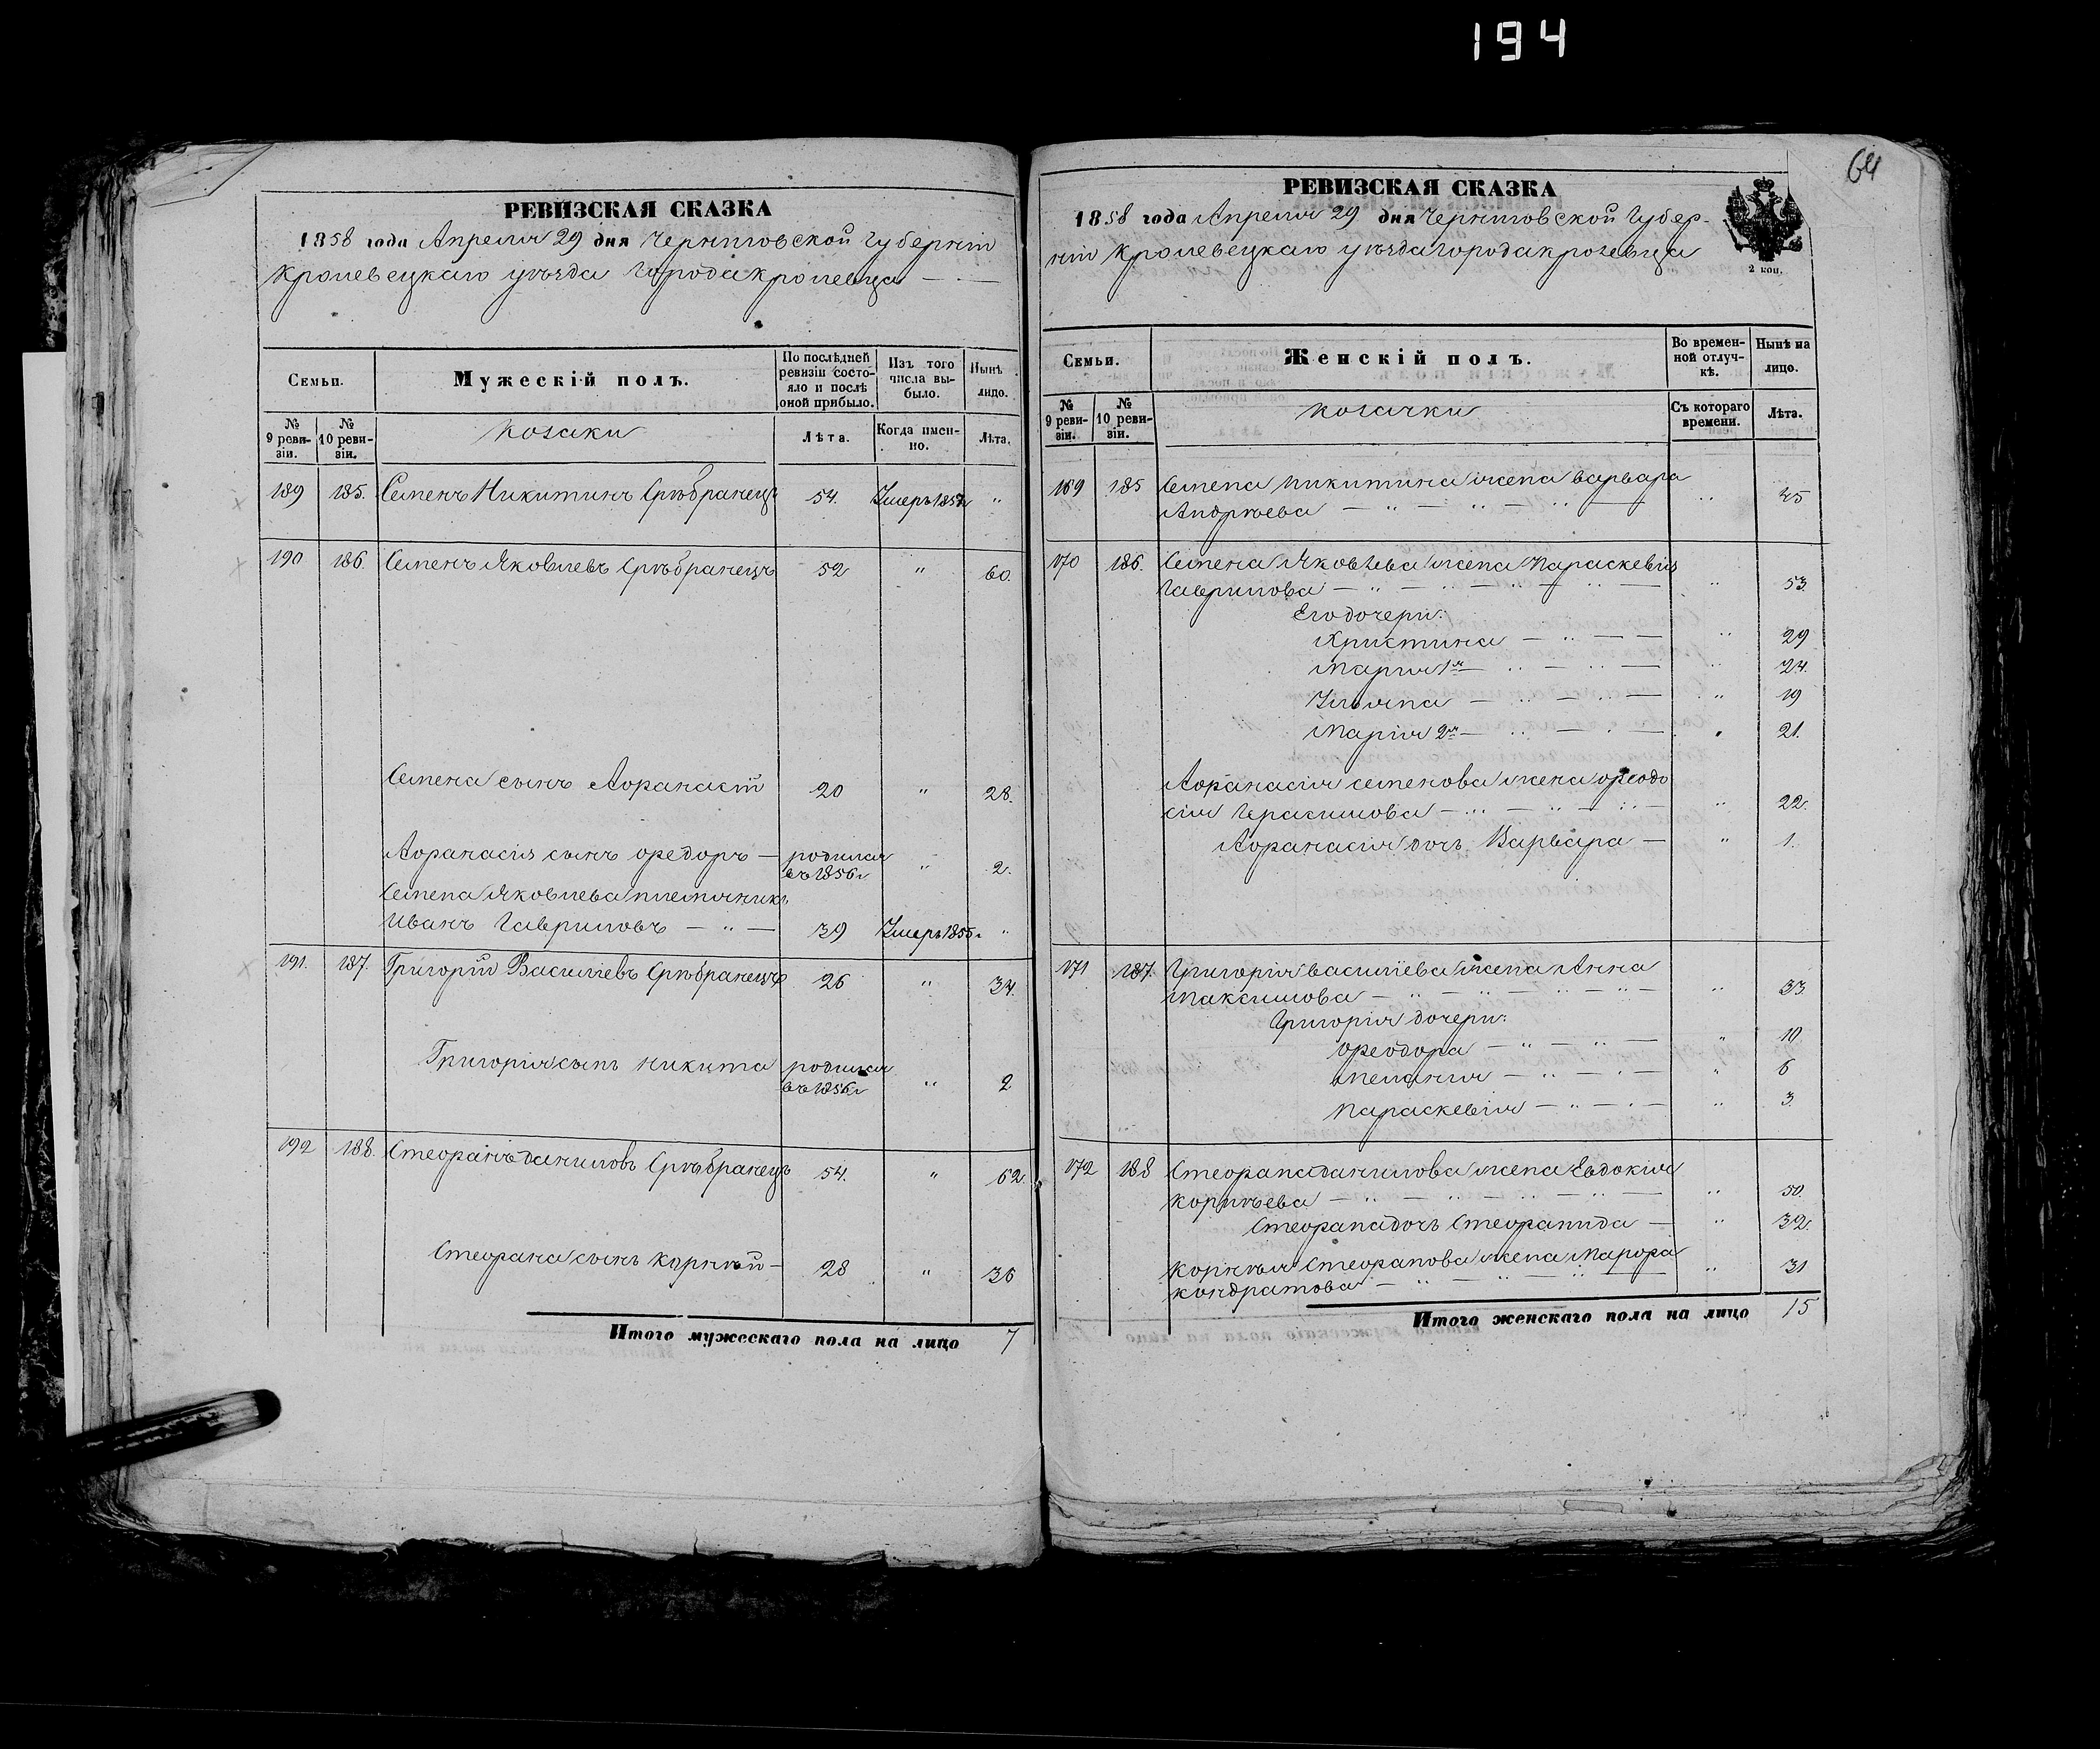 194
64
РЕВИЗСКАЯ СКАЗКА
1858 года Апреля 29 дня Черниговской Губерніи
Кролевецкаго уѣзда Города Кролевца
Семьи.
Мужескій полъ.
По послѣдней ревизіи состояло и послѣ оной прибыло.
Изъ того числа выбыло.
Нынѣ на лицо.
№ 9 ревизіи.
№ 10 ревизіи.
Козаки
Лѣта.
Когда именно.
Лѣта.
189 185. Семенъ Никитинъ Срѣбранецъ 54. Умеръ "
190 186. Семенъ Яковлевъ Срѣбранецъ 52 " 60.
Семена сынъ Афанасій 20 " 28.
Афанасія сынъ Федоръ — родился въ 1856 г " 2.
Семена Яковлева племянникъ
Иванъ Гавриловъ — " — 39 Умеръ 1855 г "
191. 187. Григорій Василіевъ Срѣбранецъ 26 " 34.
Григорія сынъ Никита родился въ 1856 г " 2
192 188. Стефанъ Даниловъ Срѣбранецъ 54. " 62.
Стефана сынъ Корнѣй — 28 " 36
Итого мужескаго пола на лицо 7
РЕВИЗСКАЯ СКАЗКА
1858 года Апреля 29 дня Черниговской Губер-
ніи Кролевецкаго уѣзда города Кролевца
2 коп.
Семьи.
Женскій полъ.
Во временной отлучкѣ.
Нынѣ на лицо.
№ 9 ревизіи.
№ 10 ревизіи.
Козачки
Съ котораго времени.
Лѣта.
169 185 Семена Никитина жена Варвара
Андрѣева — " — " — " — " 45
170 186. Семена Яковлева жена Параскевія
Гаврилова — " — " — " — " 53.
Его дочери:
Христина — " — — " 29
Марія 1я — " — " — " 24.
Ульяна — " — " — " 19
Марія 2я — " — " — " 21.
Афанасія Семенова жена Феодо
сія Герасимова — " — " — " — " 22.
Афанасія дочь Варвара — " 1.
171 187. Григорія Василіева жена Анна
Максимова — " — " — " — " 33.
Григорія дочери:
Феодора — " — " — " 10
Меланія — " — " — " 6
Параскевія — " — " — " 3.
172 188 Стефана Данилова жена Евдокія
Корнѣева — " — " — " — " — " 50.
Стефана дочь Стефанида — " 32.
Корнѣя Стефанова жена Марфа
Кондратова — " — " — " — " 31
Итого женскаго пола на лицо 15